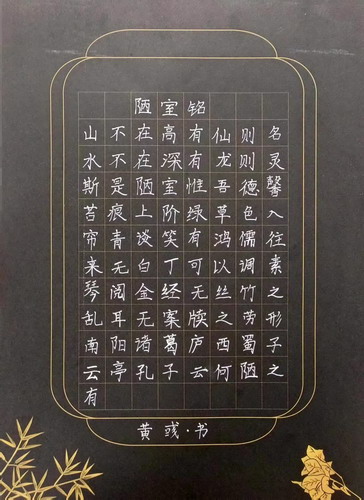 陋室铭
山不在高有仙则名
水不在深有龙则灵
斯是陋室惟吾德馨
苔痕上阶绿草色入
帘青谈笑有鸿儒往
来无白丁可以调素
琴阅金经无丝竹之
乱耳无案牍之劳形
南阳诸葛庐西蜀子
云亭孔子云何陋之
有
黄彧·书